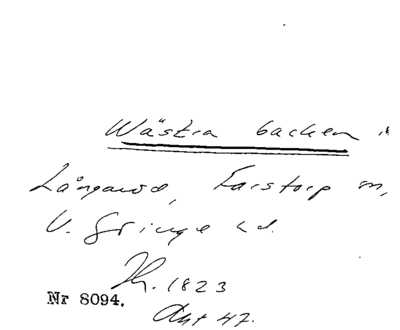 Wästra backen i
Långaröd, Farstorp sn,
V. Göinge hd.
Lh. 1823
Nr 8094. Akt 47.